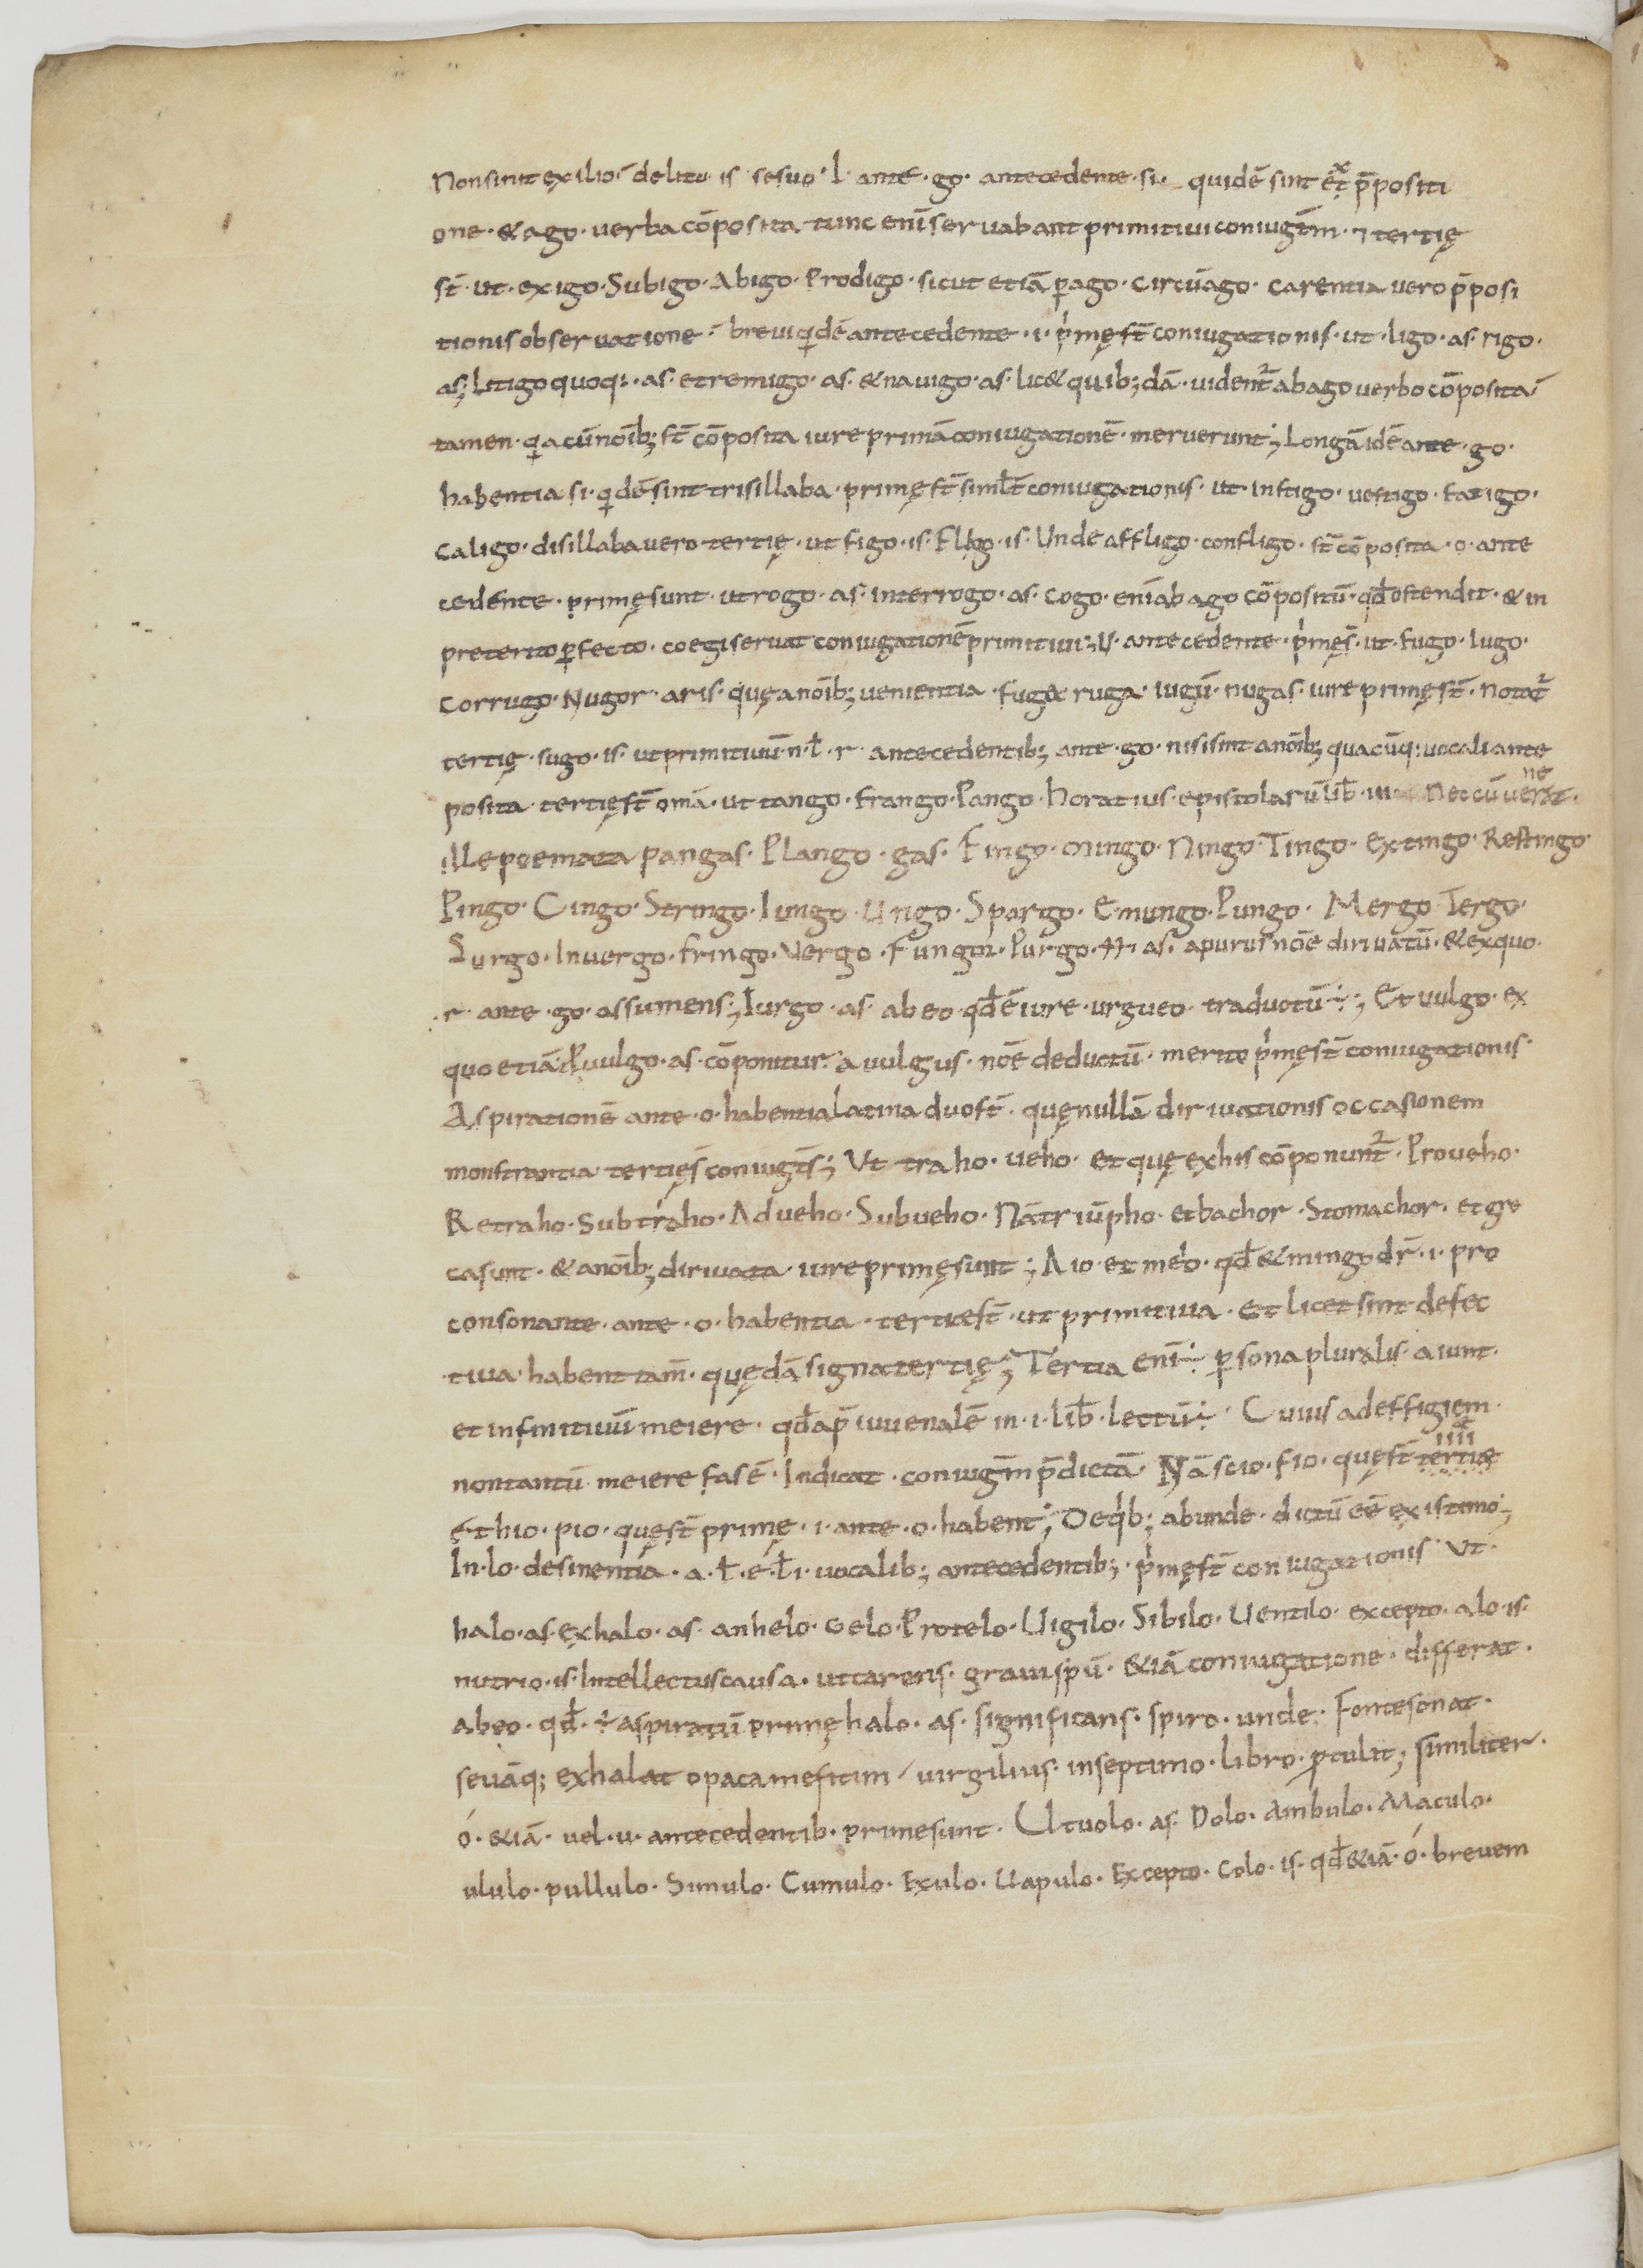 Non sint ex ilio· delitu is sesuo· l· ante· go· antecedente· si· quidē sint et̄ p̄positi
one· & ago· verba cōposita tunc enī servabant primitivi coniugēm· ⁊ tertię
sт̄· ut· exigo· Subigo· Abigo· Prodigo· sicut etiā ꝑago· circūago· carentia vero p̄posi
tionis observatione· brevi qidē antecedente· i· pͥmę sт̄ coniugationis· ut· ligo· as· rigo·
as; Litigo quoq:· as· et remigo· as· & navigo· as· lic& quib;dā· vident᷑ ab ago verbo cōposita·
tamen· qa cū noīb; sт̄ cōposita iure primā coniugationē· meruerunt; Longā idē ante· go·
habentia si· qidē sint trisillaba· primę sт̄ simlт̄ coniugationis· ut instigo· vestigo· fatigo·
caligo· disillaba vero tertię· ut figo· is· Fligo· is· Unde affligo· confligo· sт̄ cōposita· o· ante
cedente· primę sunt· ut rogo· as· interrogo· as· cogo· enī ab ago cōpositū· qđ ostendit· & in
preterito ꝑfecto· coegi servat coniugationē primitivi; U· antecedente· pͥmę s̄· ut· fugo· lugo·
corrugo· Nugor· aris· quę a noīb; venientia· fuga ruga· iugū· nugas· iure primę sт̄· notat᷑
tertię· sugo· is· ut primitivū· n· ł· r· antecedentib; ante· go· nisi sint a noīb; quacūq: vocali ante
posita· tertię sт̄ omā· ut tango· frango· Pango· horatius· epistolarū lib̄· Nec cū venerat·
ille poemata pangas· Plango· gas· Fingo· mingo· Ningo· Tingo· Extingo· Restingo·
Pingo· Cingo· Stringo· Iungo· Ungo· Spargo· Emungo· Pungo· Mergo· Tergo·
Surgo· Invergo· fringo· Vergo· Fungor· Purgo· as· a purus noīe dirivatū· & ex quo·
·r· ante· go· assumens; Iurgo· as· ab eo qđ ē iure· urgueo· traductū ÷; Et vulgo· ex
quo etiā· Puulgo· as· cōponitur· a vulgus· noīe deductū· merito pͥmę sт̄ coniugationis·
Aspirationē ante· o· habentia latina duo sт̄· quę nullā dirivationis occasionem
monstrantia tertię s̄ coniugт̄s; Ut traho· veho· et quę ex his cōponunt᷑· Proveho·
Retraho· Subtraho· Adveho· Subveho· Nā triūpho· et bachor· Stomachor· et gre
ca sunt· & a noīb; dirivata· iure primę sunt; Aio et meio· qđ & mingo dr̄· i· pro
consonante· ante· o· habentia· tertię sт̄· ut primitiva· Et licet sint defec
tiva· habent tam̄· quędā signa tertię; Tertia enī ÷ ꝑsona pluralis· aiunt·
et infinitivū meiere· qđ ap̄ iuvenalē in· i· lib̄· lectū ÷· Cuius ad effigiem·
non tantū meiere fas ē· Indicat· coniugēm p̄dictā· Nā scio· fio· quę sт̄ tertiae iiii
Et hio· pio· quę sт̄ primę· i· ante· o· habent; De qͥb; abunde· dictū eē existimo;
In· lo· desinentia· a· ł· e· ł i· vocalib; antecedentib; pͥmę sт̄ coniugationis ut·
halo· as· exhalo· as· anhelo· celo· Protelo· Vigilo· Sibilo· Ventilo· excepto· alo· is·
nutrio· is· Intellectus causa· ut carens· gravi sp̄u· &iā coniugatione· differat·
ab eo· qđ· ÷ aspiratū primę halo· as· significans· spiro· unde· Fonte sonat·
sevāq; exhalat opaca mefitim· virgilius· in septimo· libro· ꝓtulit; similiter·
o· &iā· vel· u· antecedentib· prime sunt· Ut volo· as· Dolo· Ambulo· Maculo·
ululo· pullulo· Simulo· Cumulo· Exulo· Vapulo· Excepto· colo· is· qđ &iā· ó· brevem